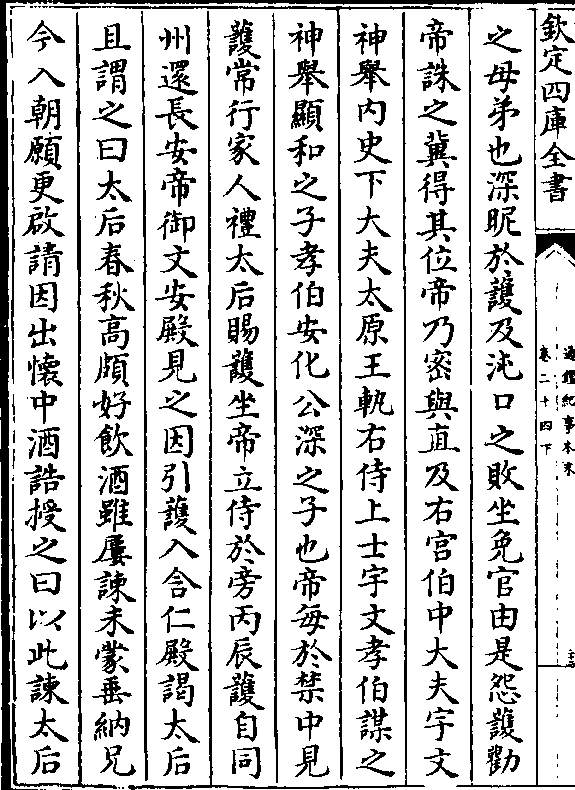 欽定四庫全書
通鑑紀事本末
卷二十四下
之母弟也深昵於護及沌口之敗坐免官由是怨護勸
帝誅之冀得其位帝乃密與直及右宫伯中大夫宇文
神舉内史下大夫太原王軌右侍上士宇文孝伯謀之
神舉顯和之子孝伯安化公深之子也帝每於禁中見
護常行家人禮太后賜護坐帝立侍於旁丙辰護自同
州還長安帝御文安殿見之因引護入含仁殿謁太后
且謂之曰太后春秋高頗好飲酒雖屢諫未蒙垂納兄
今入朝願更啟請因出懷中酒誥授之曰以此諫太后